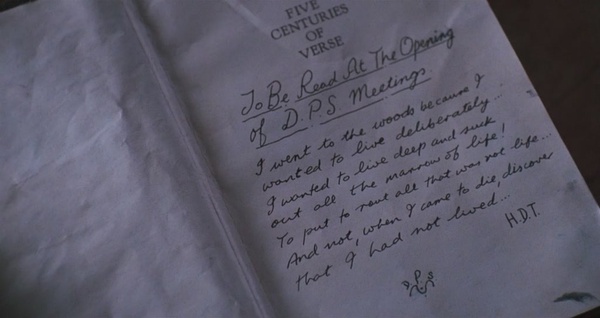 FIVE
CENTURIES
OF
VERSE
To Be Read At The Opening
of D.P.S Meetings
I went to the woods because I
wanted to live deliberately...
I wanted to live deep and suck
out all the marrow of life!
To put to rout all that was not life...
And not, when I came to die, discover
that I had not lived...
H.D.T.
D P S